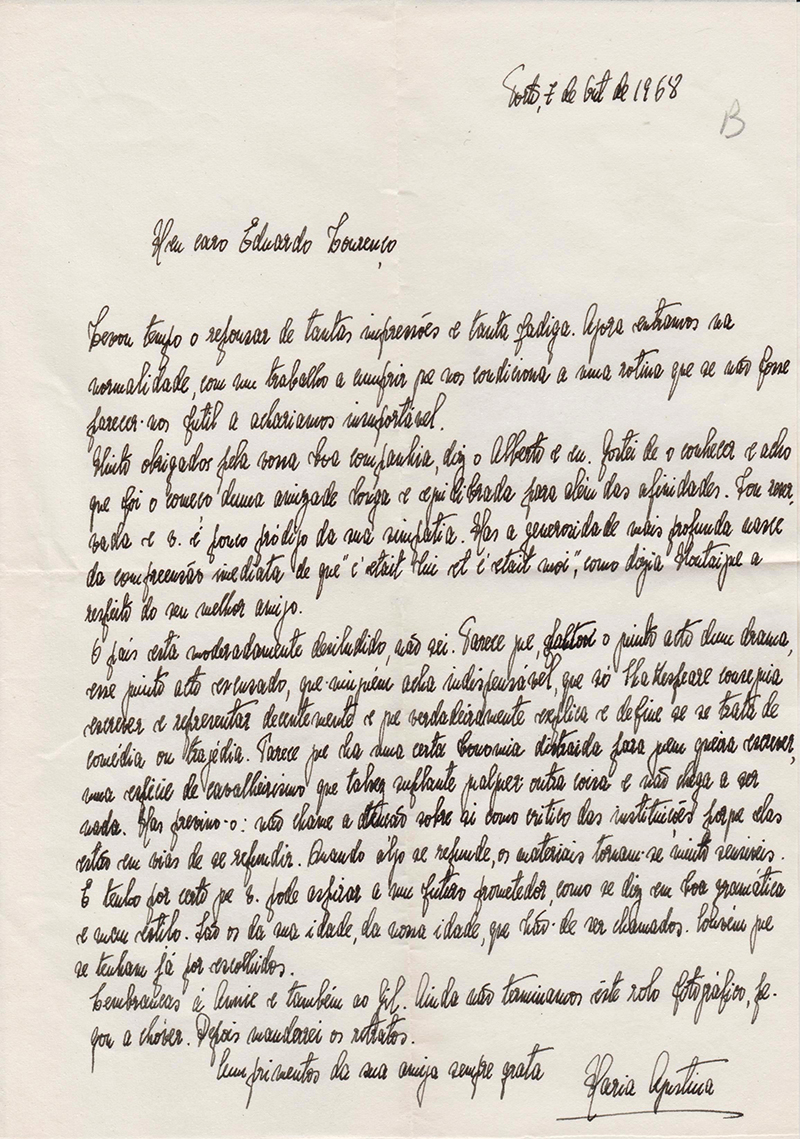 Porto, 7 de Out de 1968
B
Meu caro Eduardo Lourenço,
Levou tempo o repousar de tantas impressões e tanta fadiga. Agora entramos na
normalidade, com um trabalho a cumprir que nos condiciona a uma rotina que se não fosse
parecer-nos fútil a achariamos insuportável.
Muito obrigados pela vossa boa companhia, diz o Alberto e eu. Gostei de o conhecer e acho
que foi o começo duma amizade longa e equilibrada para além das afinidades. Sou reser-
vada e v. é pouco pródigo da sua simpatia. Mas a generosidade mais profunda nasce
da compreensão imediata de que "c'etait lui et c'etait moi", como dizia Montaigne a
respeito do seu melhor amigo.
O país está moderadamente desiludido, não sei. Parece que, o quinto acto dum drama,
esse quinto acto escusado, que ninguém acha indispensável, que só Shakespeare conseguia
escrever e representar decentemente e que verdadeiramente explica e define se se trata de
comédia ou tragédia. Parece que ha uma certa bonomia distraida para quem queira escrever,
uma espécie de cavalheirismo que talvez suplante qualquer outra coisa e não chega a ser
nada. Mas previno-o: não chame a atenção sobre si como critico das instituições porque elas
estão em vias de se refundir. Quando algo se refunde, os materiais tornam-se muito sensiveis.
E tenho por certo que v. pode aspirar a um futuro prometedor, como se diz em boa gramática
e mau estilo. São os da sua idade, da nossa idade, que hão-de ser chamados. Convém que
se tenham já por escolhidos.
Lembranças á Annie e também ao Gil. Ainda não terminamos êste rolo fotográfico, pe-
gou a chover. Depois mandarei os retratos.
Cumprimentos da sua amiga sempre grata
Maria Agustina